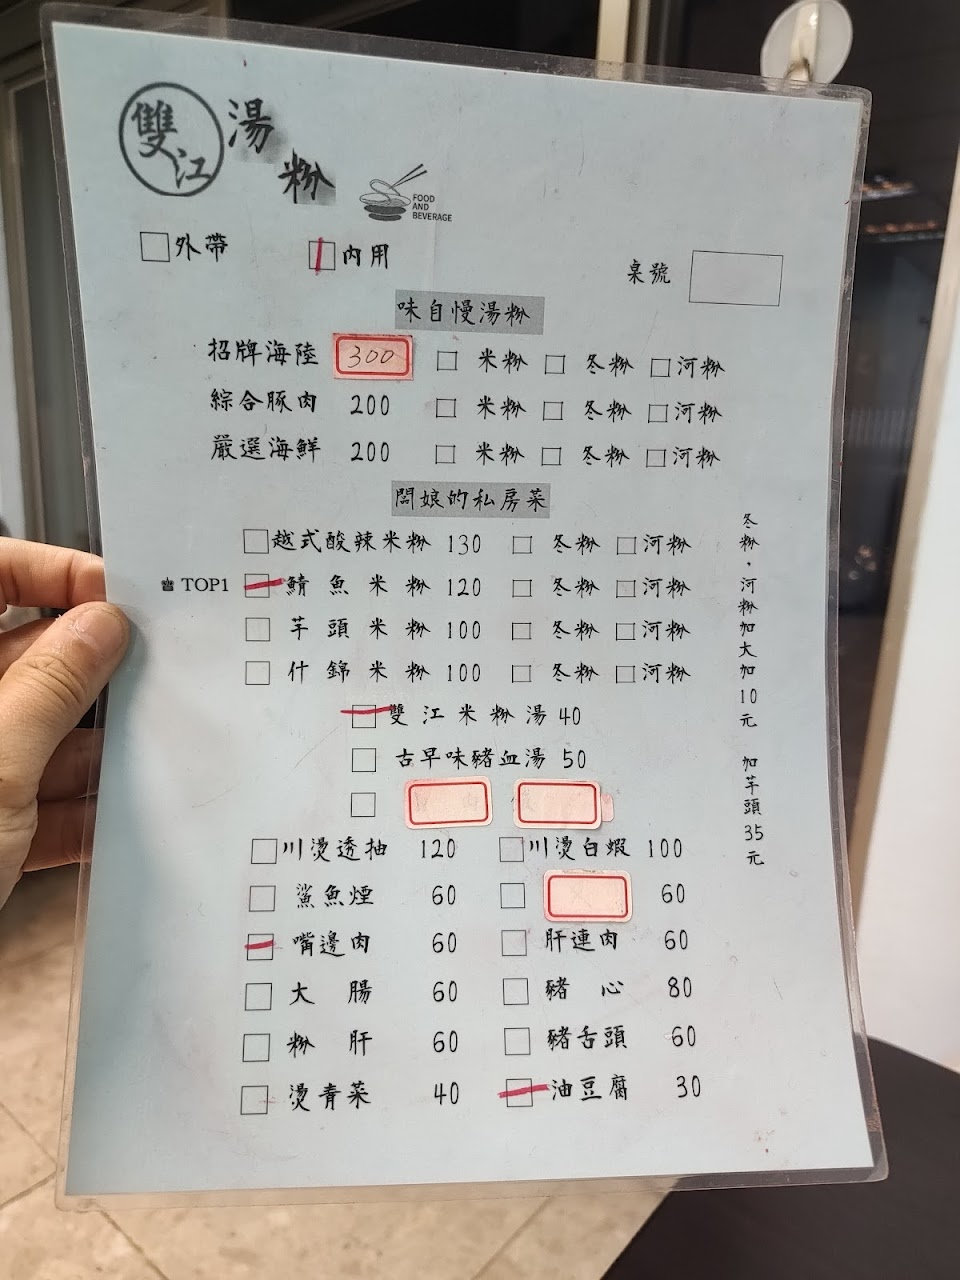 雙江湯粉
FOOD
AND
BEVERAGE
□外帶 □內用
桌號
味自慢湯粉
招牌海陸 300 □ 米粉 □ 冬粉 □河粉
綜合豚肉 200 □ 米粉 □ 冬粉 □河粉
嚴選海鮮 200 □ 米粉 □ 冬粉 □河粉
闆娘的私房菜
□越式酸辣米粉 130 □ 冬粉 □河粉
TOP1 □鯖魚米粉 120 □ 冬粉 □河粉
□芋頭米粉 100 □ 冬粉 □河粉
□什錦米粉 100 □ 冬粉 □河粉
□雙江米粉湯 40
□古早味豬血湯 50
□
□川燙透抽 120 □川燙白蝦 100
□鯊魚煙 60 □ 60
□嘴邊肉 60 □肝連肉 60
□大腸 60 □豬心 80
□粉肝 60 □豬舌頭 60
□燙青菜 40 □油豆腐 30
冬粉·河粉加大加10元 加芋頭35元